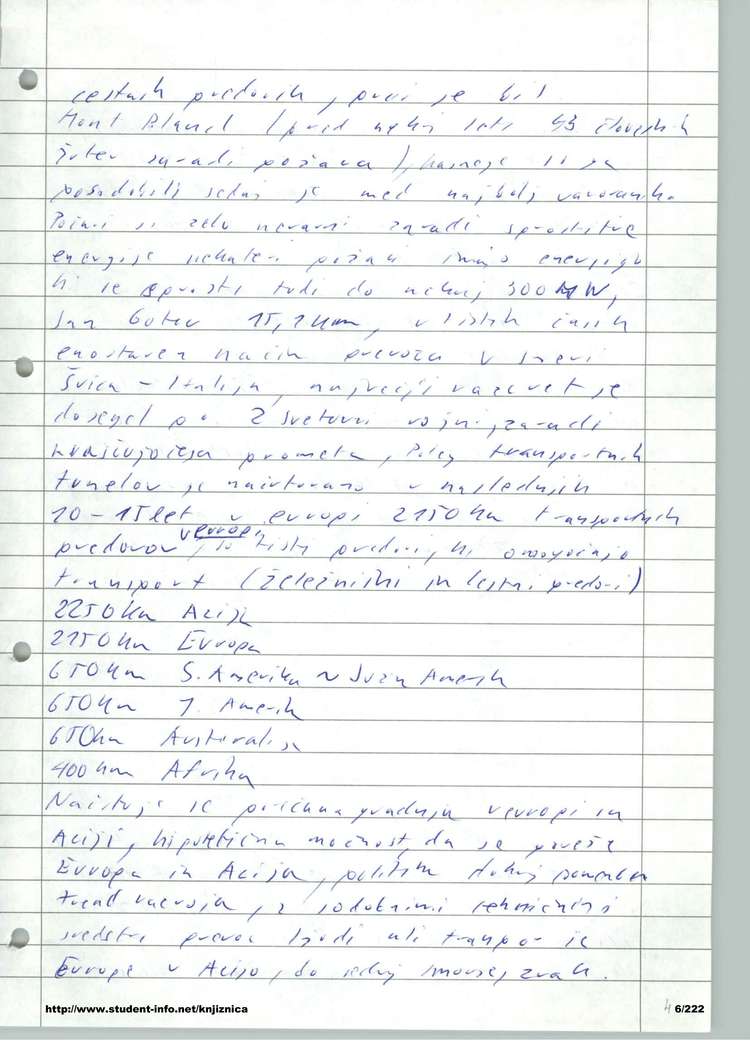 cestnih predorih, prvi je bil
Mont Blanc (pred nekaj leti 43 človeških
žrtev zaradi požara), kasneje so ga
posodobili sedaj je med najbolj varovanih.
Požari so zelo nevarni zaradi sprostitve
energije nekateri požari imajo energijo
ki se sprosti tudi do nekaj 300 MW,
San Gotard 15, km, v tistih časih
enostaven način prevoza v smeri
Švica - Italija, največji razcvet je
dosegel po 2 svetovni vojni, zaradi
prometa, Poleg transportnih
tunelov je načrtovano v naslednjih
10-15 let v evropi 2150 km transportnih
predorov v evropi, to tisti predori, ki omogočajo
transport (železniški in cestni predori)
2250 km Azija
2150 km Evropa
650 km S. Amerika ~ Južn Amerik
650 km J. Amerik
650 km Australija
400 km Afrika
se pričakuje v evropi in
Aziji, hipotetična možnost, da se poveže
Evropa in Azija,
trend razvoja, z sodobnimi tehničnimi
sredstvi prevoz ljudi ali transport iz
Evrope v Azijo, do sedaj morje, zrak.
http://www.student-info.net/knjiznica
4 6/222